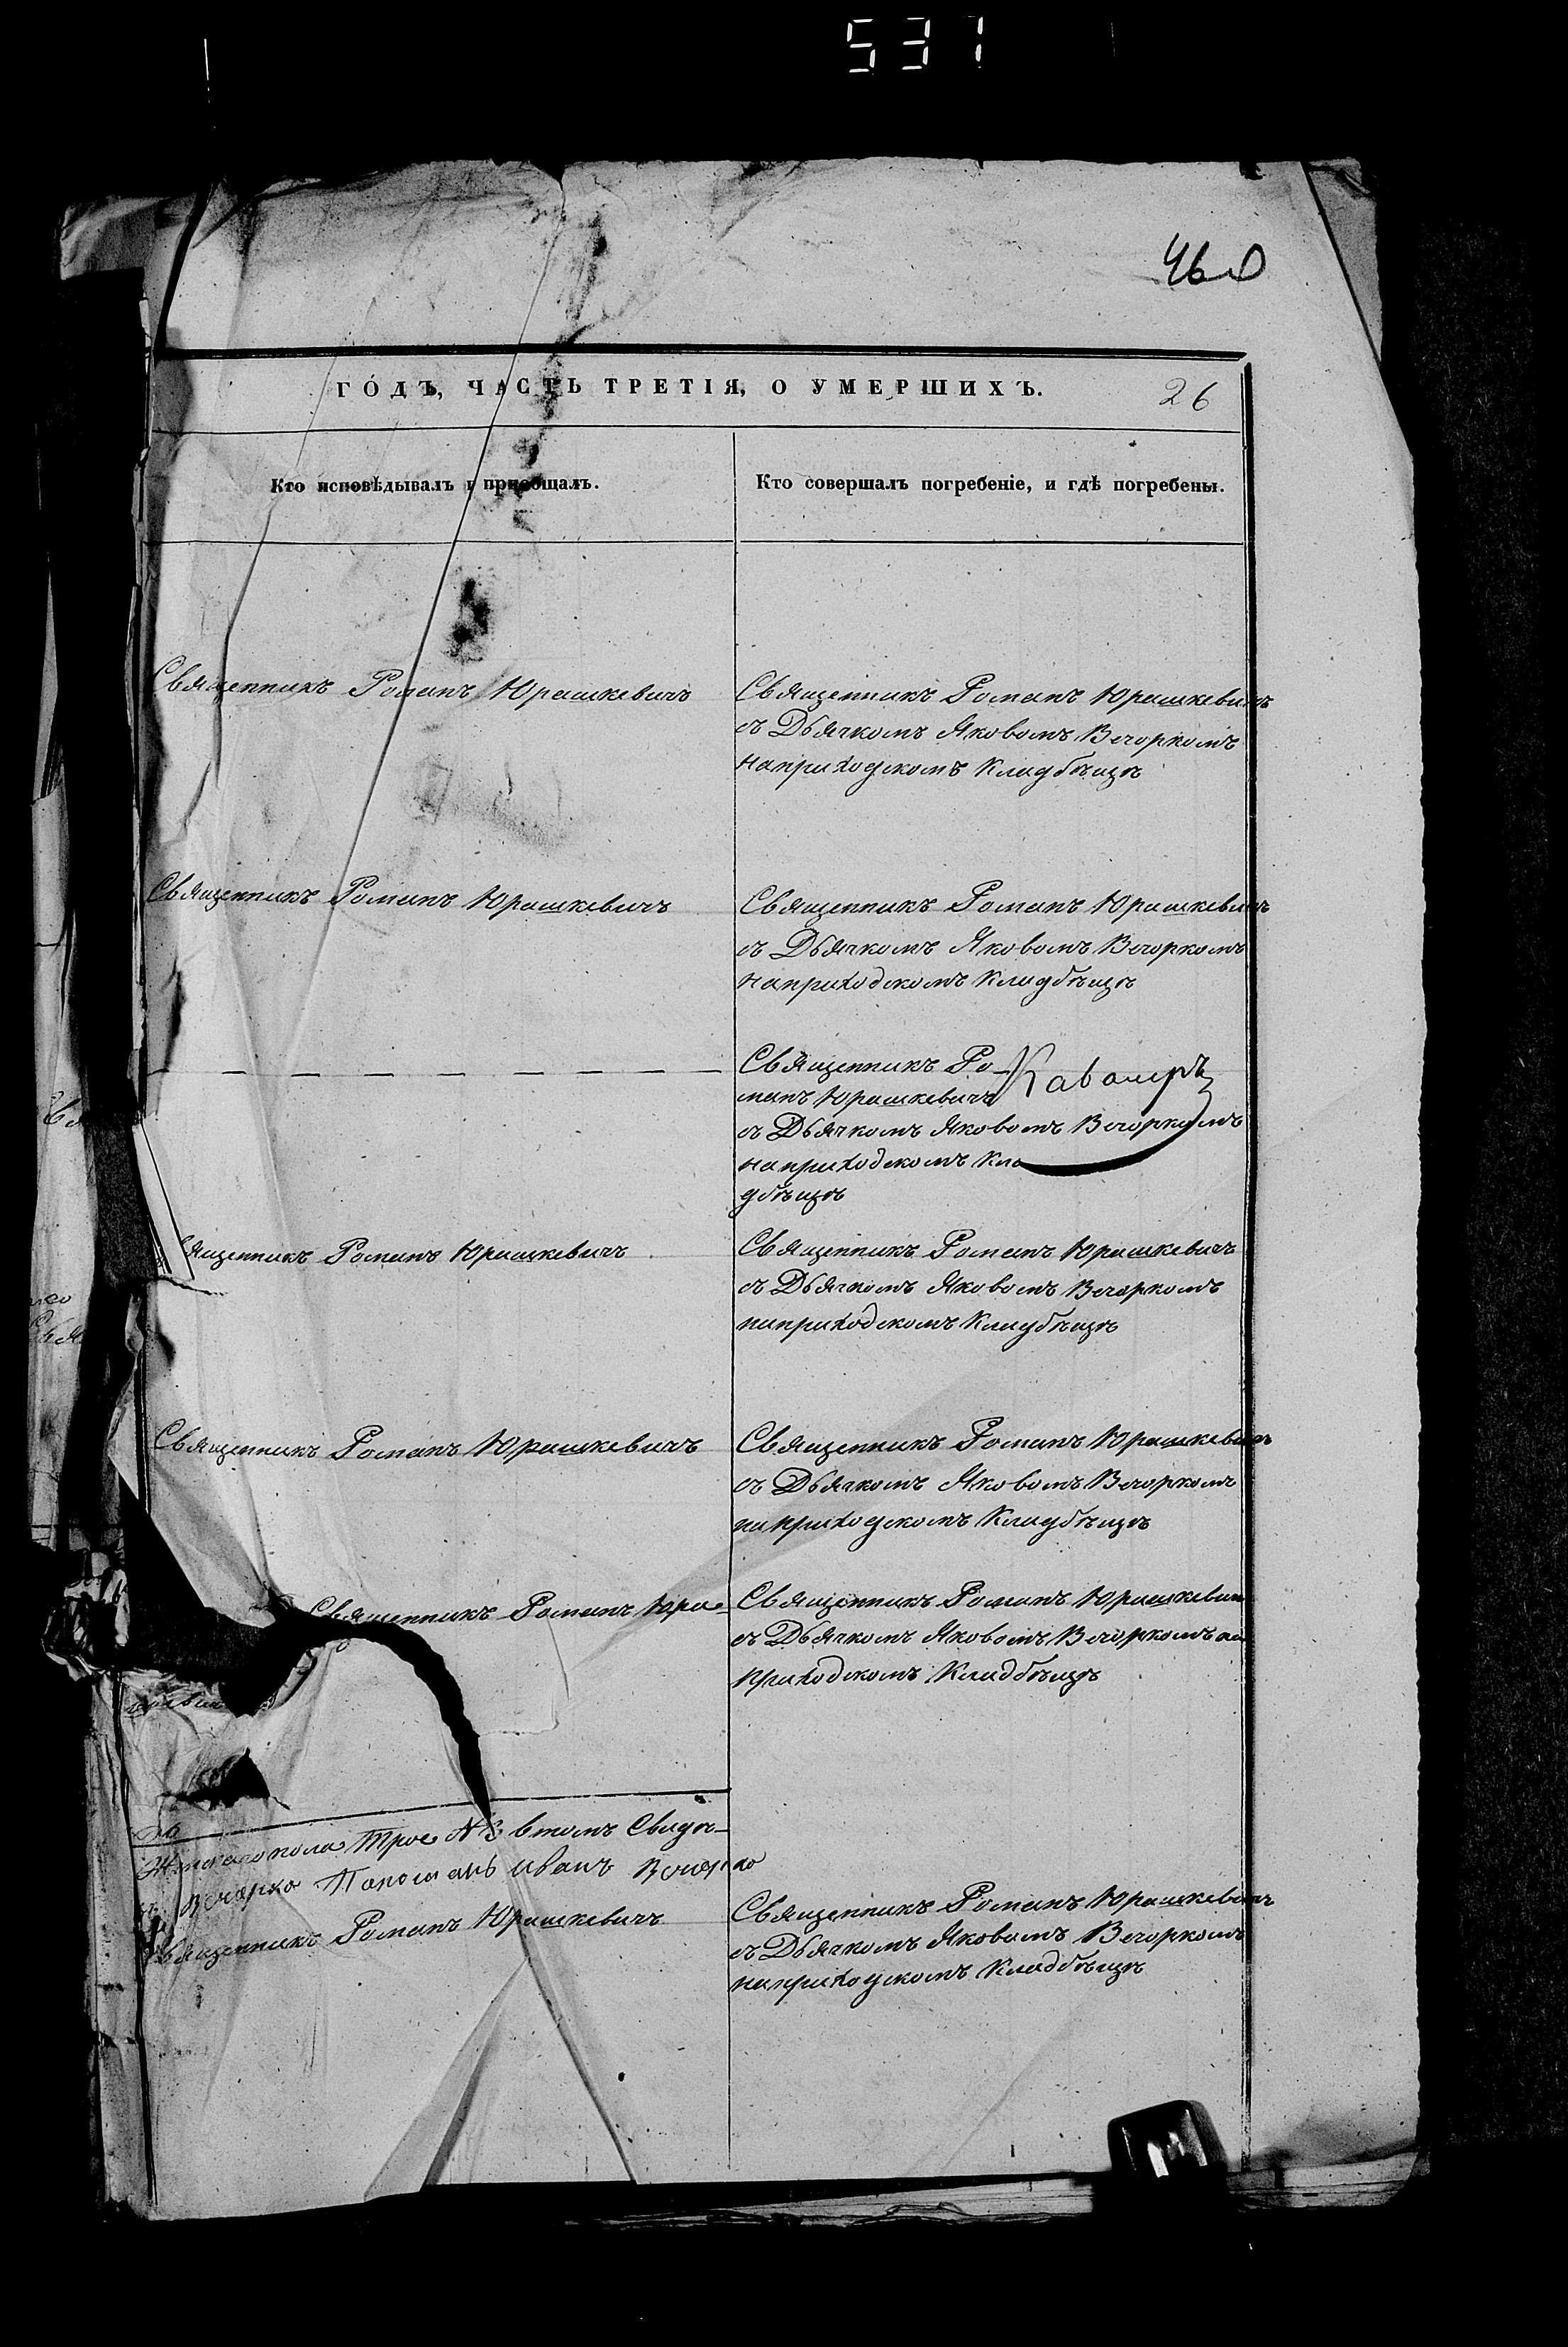 537
460
ГОДЪ, ЧАСТЬ ТРЕТІЯ, О УМЕРШИХЪ. 26
Кто исповѣдывалъ и приобщалъ.
Кто совершалъ погребеніе, и гдѣ погребены.
Священникъ Романъ Юрашкевичъ
Священникъ Романъ Юрашкевичъ
съ Дьячкомъ Яковомъ Вечоркомъ
наприходскомъ Кладбѣщѣ
Священникъ Романъ Юрашкевичъ
Священникъ Романъ Юрашкевичъ
съ Дьячкомъ Яковомъ Вечоркомъ
наприходскомъ Кладбѣщѣ
Священникъ Ро-
манъ Юрашкевичъ
съ Дьячкомъ Яковомъ Вечоркомъ
наприходскомъ Кла
дбѣщѣ
Священникъ Романъ Юрашкевичъ
Священникъ Романъ Юрашкевичъ
съ Дьячкомъ Яковомъ Вечоркомъ
наприходскомъ Кладбѣщѣ
Священникъ Романъ Юрашкевичъ
Священникъ Романъ Юрашкевичъ
съ Дьячкомъ Яковомъ Вечоркомъ
наприходскомъ Кладбѣщѣ
Священникъ Романъ Юра-
Священникъ Романъ Юрашкевич
съ Дьячкомъ Яковомъ Вечоркомъ на
приходскомъ Кладбѣщѣ
пола Трое № 3 втомъ Свидѣ-
Вечорко Пономарь Иванъ Вечорко
Священникъ Романъ Юрашкевичъ
Священникъ Романъ Юрашкевичъ
съ Дьячкомъ Яковомъ Вечоркомъ
наприходскомъ Кладбѣщѣ